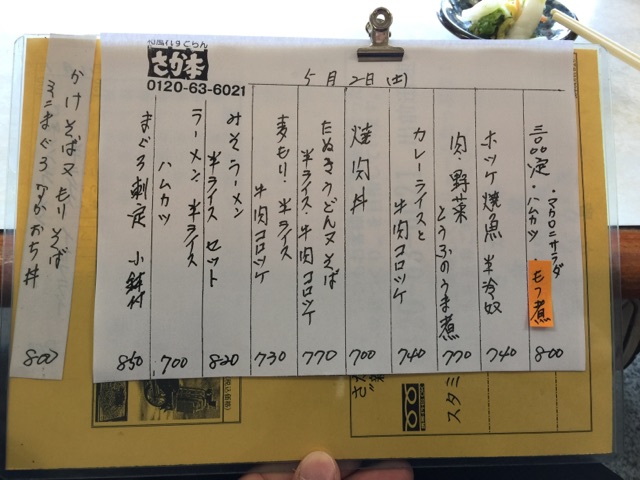 和風れすとらん
さか本
0120-63-6021
5月2日(土)
三品定・マカロニサラダ
・ハムカツ
もつ煮
800
ホッケ焼魚 半冷奴
740
肉・野菜
とうふのうま煮
770
カレーライスと
牛肉コロッケ
740
焼肉丼
700
たぬきうどん又そば
半ライス・牛肉コロッケ
770
麦もり・半ライス
牛肉コロッケ
730
みそラーメン
半ライスセット
820
ラーメン 半ライス
ハムカツ
700
まぐろ刺定 小鉢付
850
かけそば又もりそば
ミニまぐろ
丼
800
スタミ